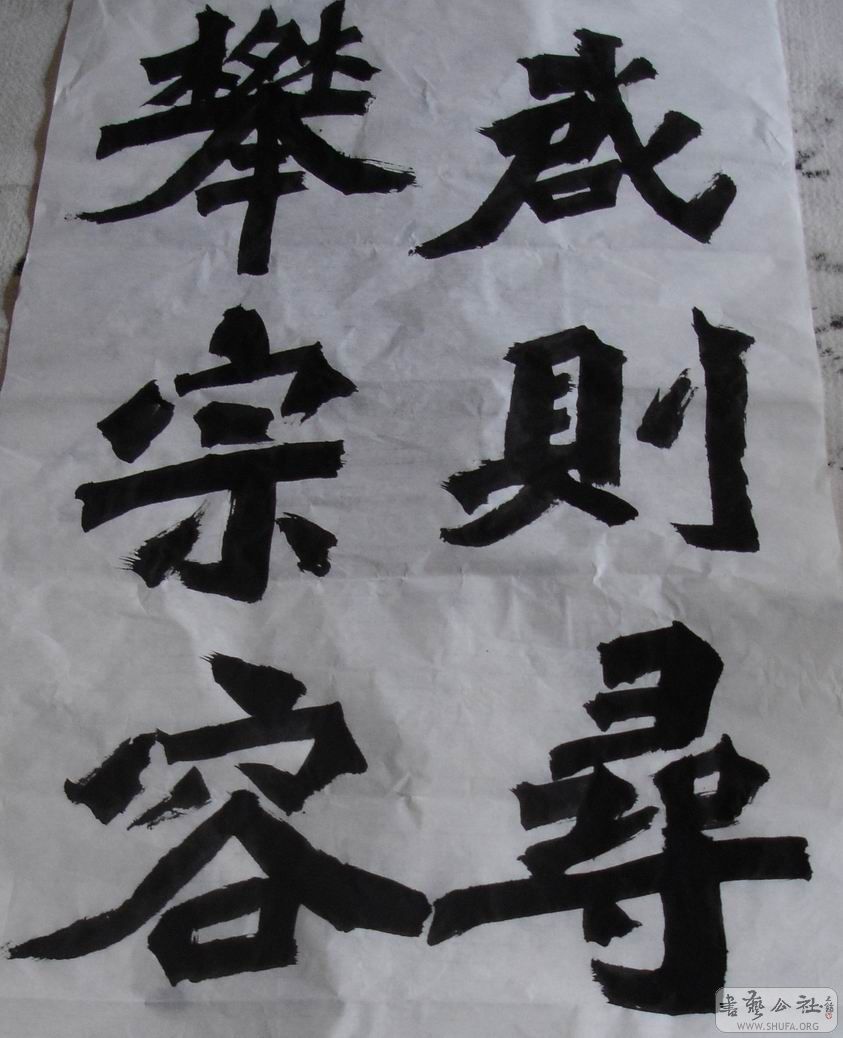 咸則尋
攀宗容
書藝公社
WWW.SHUFA.ORG